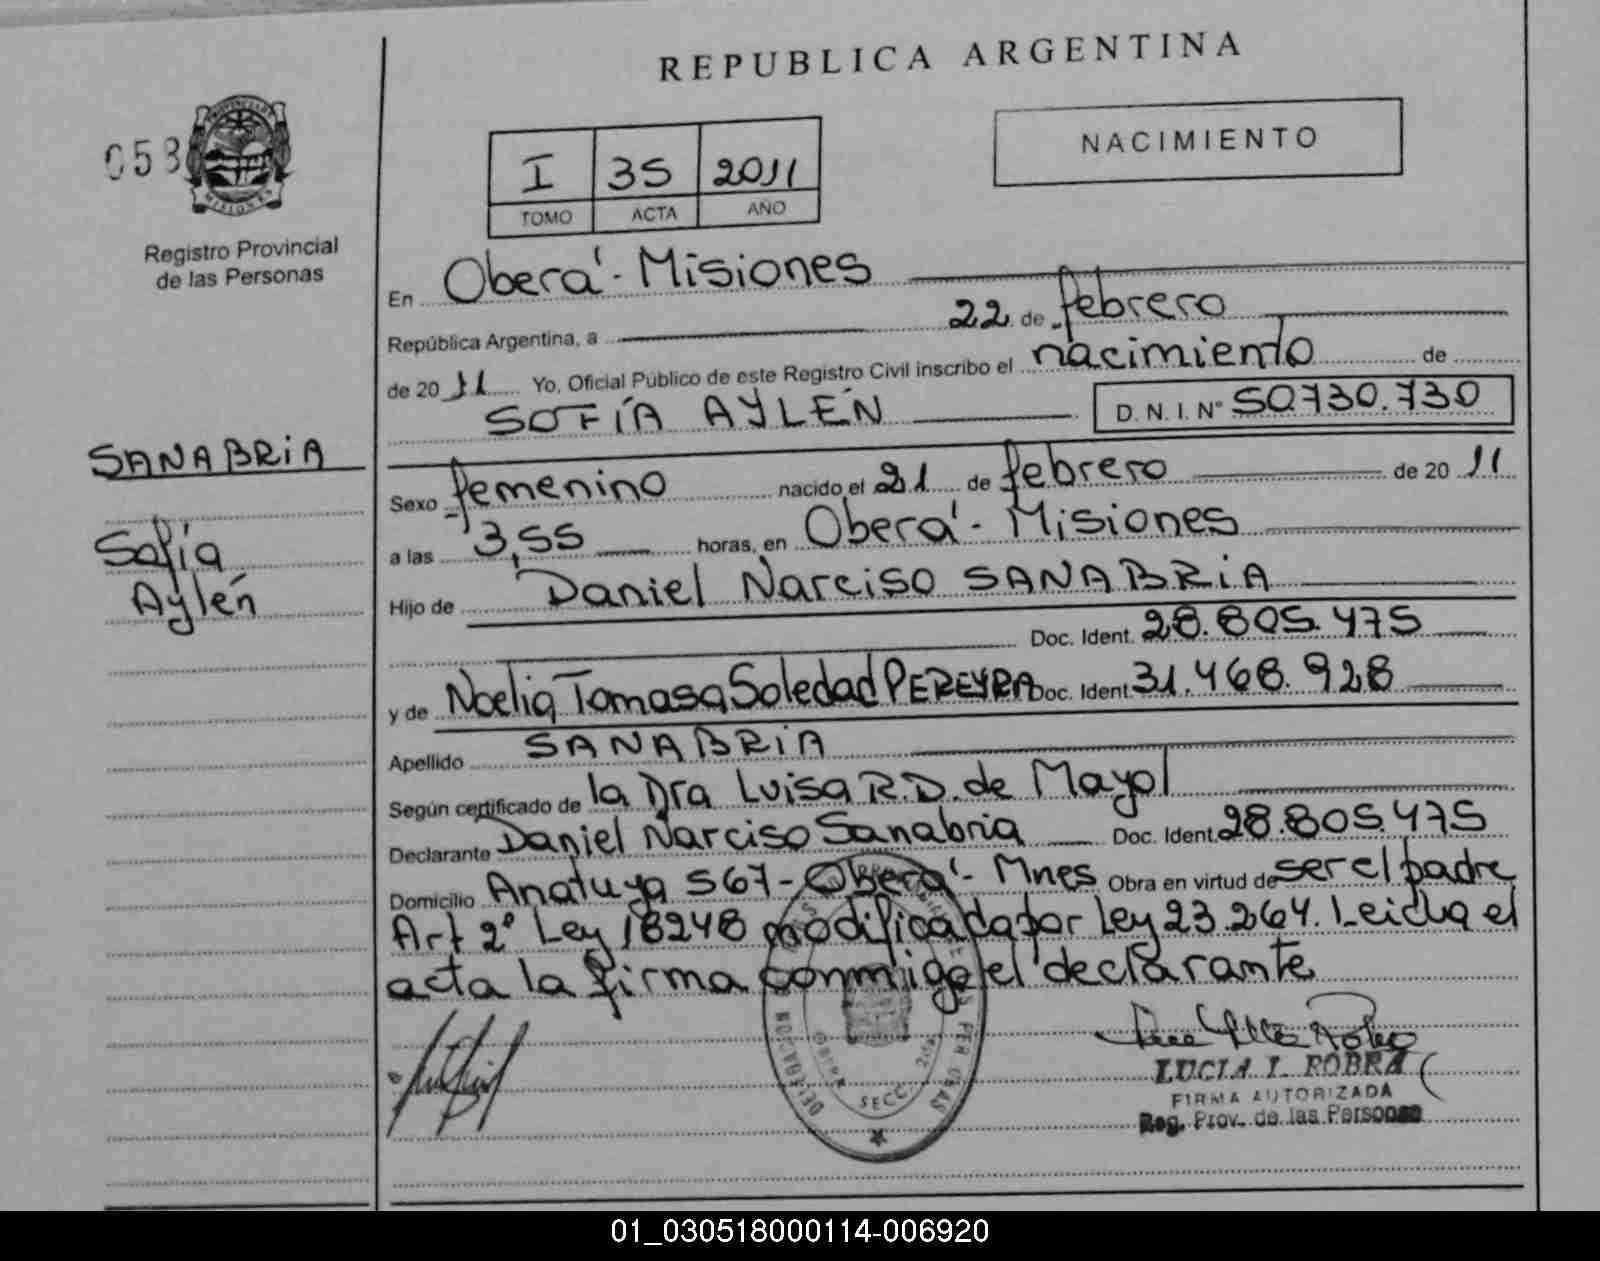 REPUBLICA ARGENTINA
NACIMIENTO
058
I 35 2011
TOMO ACTA AÑO
Registro Provincial
de las Personas
En Oberá - Misiones
República Argentina, a 22 de febrero
de 2011 Yo, Oficial Público de este Registro Civil inscribo el nacimiento de
SOFÍA AYLÉN D. N. I. N° 50.730.730
SANABRiA
Sofía
Aylén
Sexo femenino nacido el 21 de febrero de 2011
a las 3,55 horas, en Oberá - Misiones
Hijo de Daniel Narciso SANABRiA
Doc. Ident. 28.805.475
y de Noelia Tomasa Soledad PEREYRA Doc. Ident. 31.468.928
Apellido SANABRiA
Según certificado de la Dra Luisa R.D. de Mayol
Declarante Daniel Narciso Sanabria Doc. Ident. 28.805.475
Domicilio Anatuya 567 - Oberá - Mnes Obra en virtud de ser el padre
Art 2° Ley 18248 modificada por Ley 23.264. Leida el
acta la firma conmigo el declarante
LUCIA I. ROBRA
FIRMA AUTORIZADA
Reg. Prov. de las Personas
SECC.
01_030518000114-006920